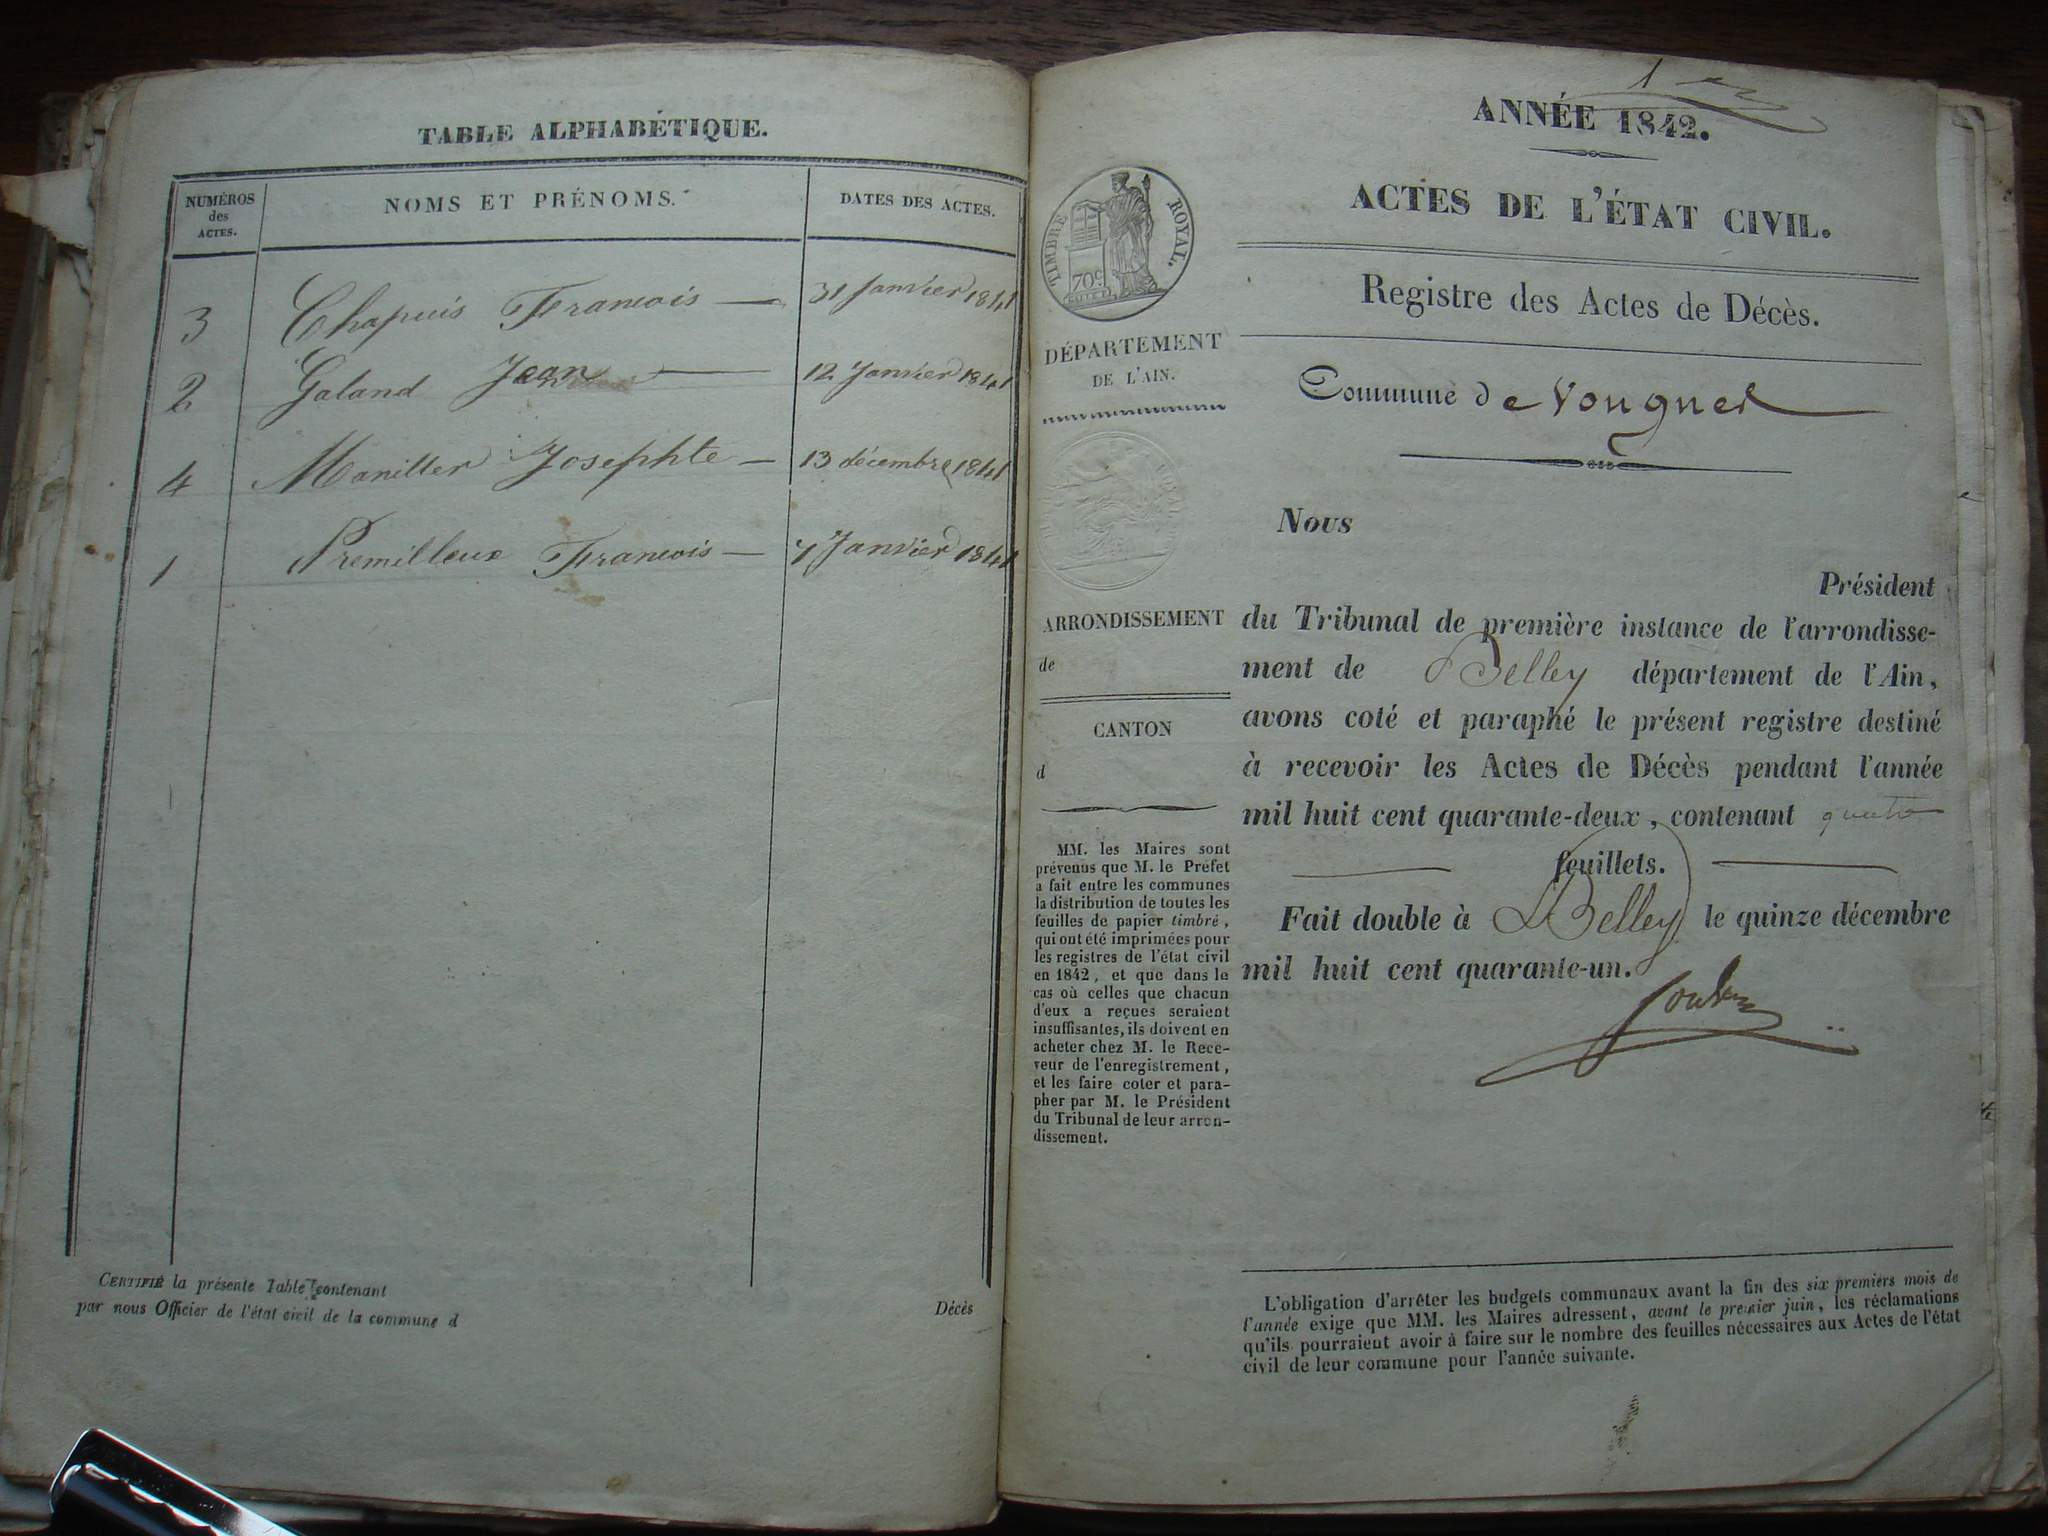 TABLE ALPHABÉTIQUE.
NUMÉROS des ACTES. NOMS ET PRÉNOMS. DATES DES ACTES.
3 Chapuis Francois — 31 Janvier 1841
2 Galand Jean — 12 Janvier 1841
4 Manitter Josephte — 13 décembre 1841
1 Premilleux Francois — 7 Janvier 1841
CERTIFIÉ la présente Table contenant
par nous Officier de l'état civil de la commune d
Décès
1er
ANNÉE 1842.
ACTES DE L'ÉTAT CIVIL.
Registre des Actes de Décès.
Commune de Vougnes
TIMBRE ROYAL.
70c
DÉPARTEMENT
DE L'AIN.
ARRONDISSEMENT
de
CANTON
d
MM. les Maires sont
prévenus que M. le Préfet
a fait entre les communes
la distribution de toutes les
feuilles de papier timbré,
qui ont été imprimées pour
les registres de l'état civil
en 1842, et que dans le
cas où celles que chacun
d'eux a reçues seraient
insuffisantes, ils doivent en
acheter chez M. le Rece-
veur de l'enregistrement,
et les faire coter et para-
pher par M. le Président
du Tribunal de leur arron-
dissement.
Nous
Président
du Tribunal de première instance de l'arrondisse-
ment de Belley département de l'Ain,
avons coté et paraphé le présent registre destiné
à recevoir les Actes de Décès pendant l'année
mil huit cent quarante-deux, contenant quatre
feuillets.
Fait double à Belley le quinze décembre
mil huit cent quarante-un.
L'obligation d'arrêter les budgets communaux avant la fin des six premiers mois de
l'année exige que MM. les Maires adressent, avant le premier juin, les réclamations
qu'ils pourraient avoir à faire sur le nombre des feuilles nécessaires aux Actes de l'état
civil de leur commune pour l'année suivante.